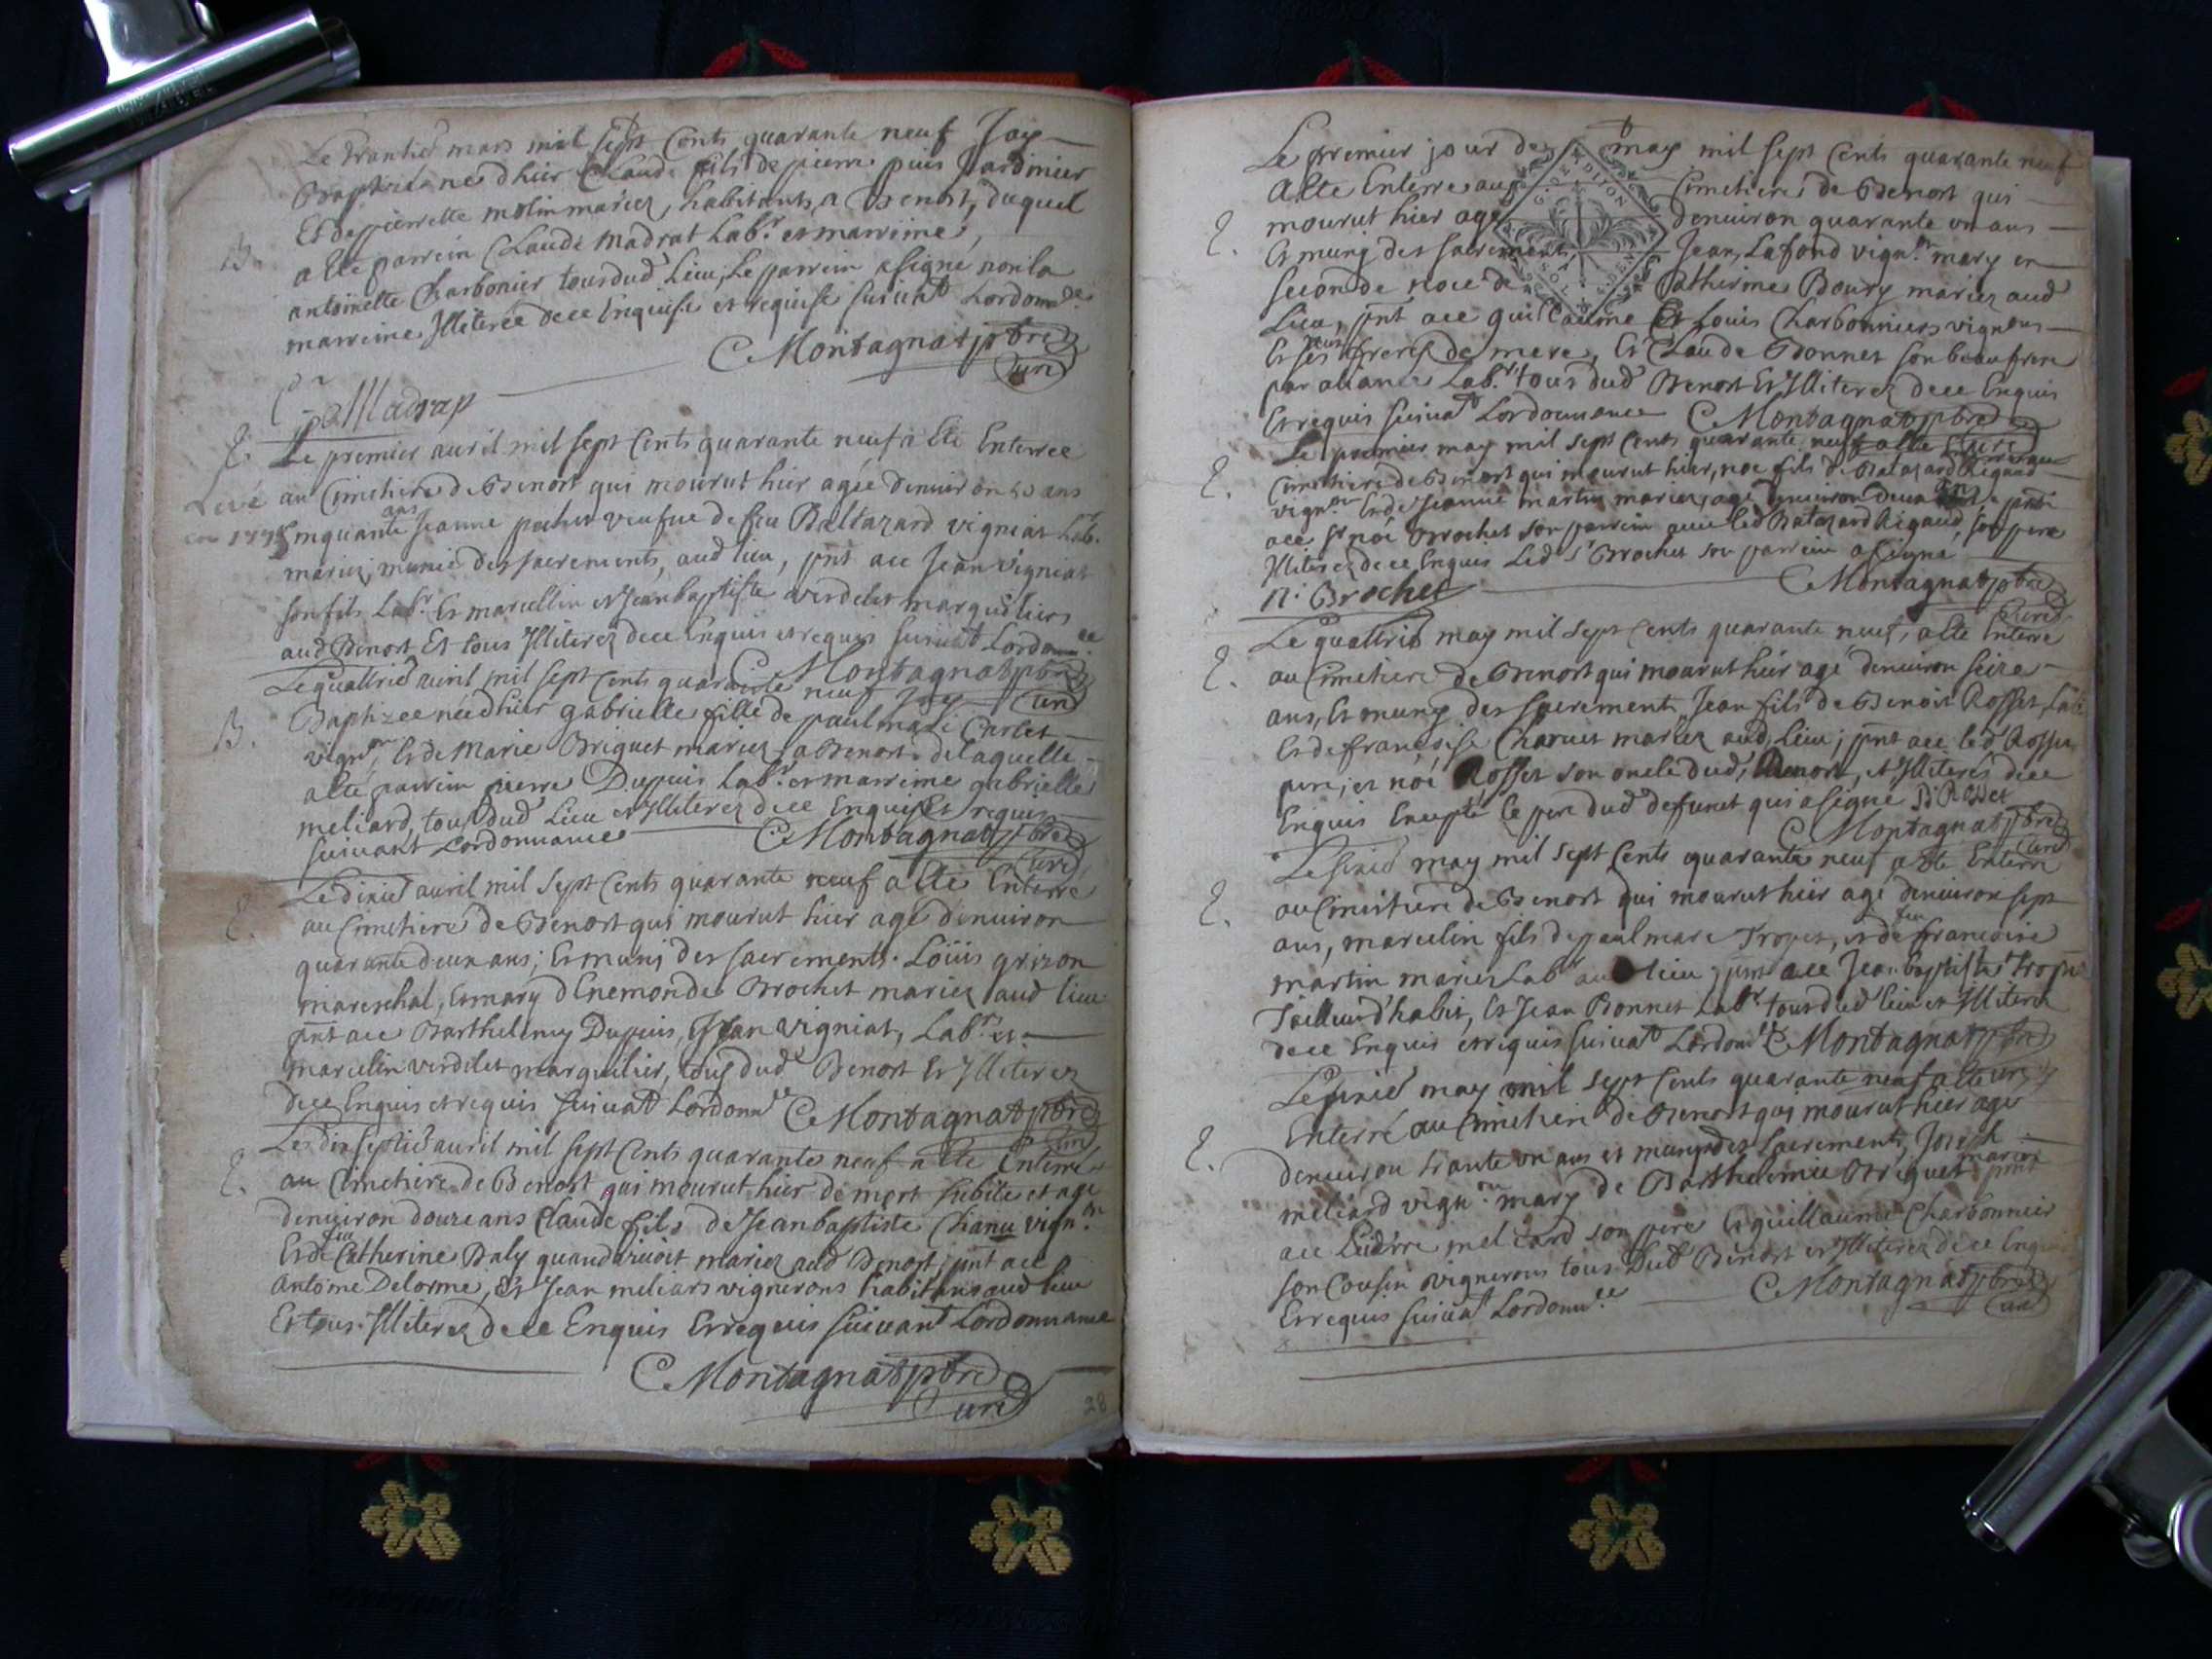 Le trantie mars mil sept Cents quarante neuf Jay
Baptise ne dhier Claude fils de pierre puis Jardinier
Et de pierrette molin mariez, habitants a Benost, duquel
B.
a Ete parrein Claude Madrat Lab.r et marreine,
antoinette Charbonier tous dud Lieu, Le parrein a signe non la
marreine Illiteree de ce Enquise et requise suivat Lordonnce
C Montagnat pbre
Curé
Madrap
E.
Le premier auril mil sept Cents quarante neuf a Ete Enterree
Levé
au Cimetiere de Benost qui mourut hier agée denuiron 50 ans
Cinquante ans Jeanne veufue de feu Baltazard vigniat Lab.
mariez, munie des sacrements, aud lieu, pnt ace Jean Vigniat
son fils Lab.r Et marcellin et Jean baptiste verdelet marguilliers
aud Benost Et tous Illiterez de ce Enquis et requis suivat Lordonn.ce
C Montagnat pbre
Curé
Le quattrie auril mil sept Cents quarante neuf Jay
B.
Baptizee née dhier gabrielle fille de paul Carlet
vignon, Et de Marie Briguet mariez a Benost, de laquelle
a Ete parrein pierre Dupuis Lab.r et marreine gabrielle
meliard, tous dud Lieu et Illiterez de ce Enquis Et requis
suivant Lordonnance C Montagnat pbre
Curé
Le dixie auril mil sept Cents quarante neuf a Ete Enterre
E.
au Cimetiere de Benost qui mourut hier age denuiron
quarante deux ans; Et muni des sacrements. Loüis grizon
mareschal, Et mary dEnemonde Brochet mariez aud lieu
pnt ace Barthelemy Dupuis, Jean Vigniat, Lab.rs et
marcelin verdelet marguilier, tous dud Benost Et Illiterez
de ce Enquis et requis suivat Lordonnce C Montagnat pbre
Curé
Le dixseptie auril mil sept Cents quarante neuf a Ete Enterré
E.
au Cimetiere de Benost qui mourut hier de mort subite et age
denuiron douze ans Claude fils de Jean baptiste Chanu vign.on
Et de feu Catherine Baly quand vivoit mariez aud Benost, pnt ace
Antoine Delorme, Et Jean meliars vignerons habitans aud lieu
Et tous Illiterez de ce Enquis Et requis suivant Lordonnance
C Montagnat pbre
Curé
28
Le premier jour de may mil sept Cents quarante neuf
a Ete Enterre au Cimetiere de Benost qui
E.
mourut hier age denuiron quarante un ans
Et muny des sacrements, Jean Lafond vign.on mary en
seconde noce de Catherine Boury mariez aud
Lieu, pnt ace guillaume Et Louis Charbonniers vignons
Et ses freres de mere, Et Claude Bonnet son beaufrere
par aliance Lab.r tous dud Benost Et Illiterez de ce Enquis
Et requis suivat Lordonnance C Montagnat pbre
Curé
Le premier may mil sept Cents quarante neuf a Ete Enterre au
E.
Cimetiere de Benost qui mourut hier, noe fils de Batazard Rigaud
vign.on Et de Jeanne martin mariez, age denuiron deux ans, pnt
ace Sr noé Brochet son parrein avec led Batazard Rigaud, son pere
Illiterez de ce Enquis Led Sr Brochet son parrein a signe
n. Brochet
C Montagnat pbre
Curé
Le quattrie may mil sept Cents quarante neuf, a Ete Enterre
E.
au Cimetiere de Benost qui mourut hier agé denuiron seize
ans, Et muny des sacrements, Jean fils de Benoit Rosset, Lab
Et de francoise Charvet mariez aud Lieu; pnt ace led Rosset
pere, et noé Rosset son oncle dud Benost, et Illiterés de ce
Enquis Excepte le pere dud defunct qui a signe B Rosset
C Montagnat pbre
Curé
Le sixie may mil sept Cents quarante neuf a Ete Enterre
E.
au Cimetiere de Benost qui mourut hier agé denuiron sept
ans, marcelin fils de paul marc Troyes, et de feu francoise
martin mariez Lab.r aud lieu, pnt ace Jean baptiste Troyes
Tailleur dhabit, Et Jean Bonnet Lab.r tous dud lieu et Illiterez
de ce Enquis et requis suivat Lordonnce C Montagnat pbre
Le sixie may mil sept Cents quarante neuf a Ete
Enterré au Cimetiere de Benost qui mourut hier age
E.
denuiron trante un ans et muny des sacrements, Joseph
meliard vign.on mary de Barthelemie Briguet mariez pnt
ace meliard son pere Et guillaume Charbonnier
son Cousin vignerons tous dud Benost et Illiterez de ce Enquis
Et requis suivat Lordonn.ce
C Montagnat pbre
Curé